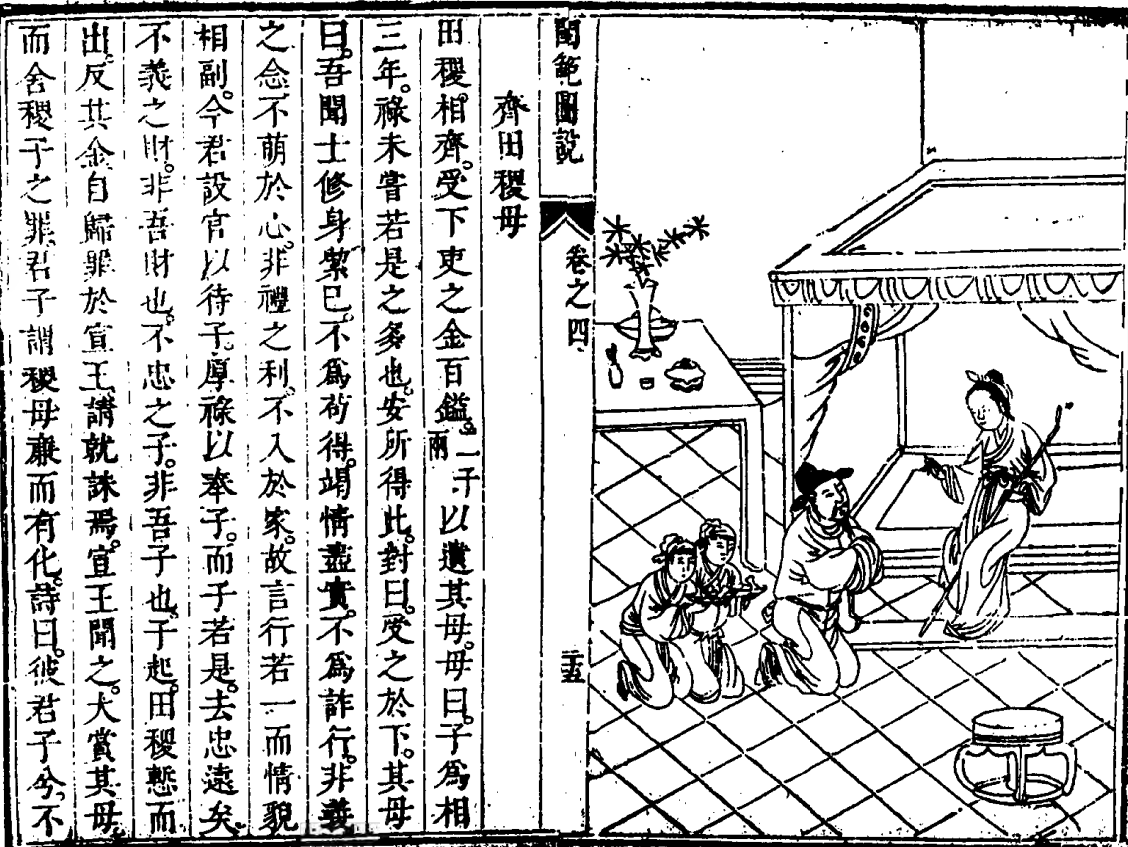 閨範圖說
卷之四
三五
齊田稷母
田稷相齊。受下吏之金百鎰。一子以遺其母。母曰。子爲相
兩
三年。祿未嘗若是之多也。安所得此。對曰。受之於下。其母
曰。吾聞士修身絜已。不爲茍得。竭情盡實。不爲詐行。非義
之念。不萌於心。非禮之利。不入於家。故言行若一而情貌
相副。今君設官以待子。厚祿以奉子。而子若是。去忠遠矣。
不義之財。非吾財也。不忠之子。非吾子也。子起。田稷慙而
出。反其金。自歸罪於宣王。請就誅焉。宣王聞之。大賞其母。
而舍稷子之罪。君子謂稷母廉而有化。詩曰。彼君子兮。不